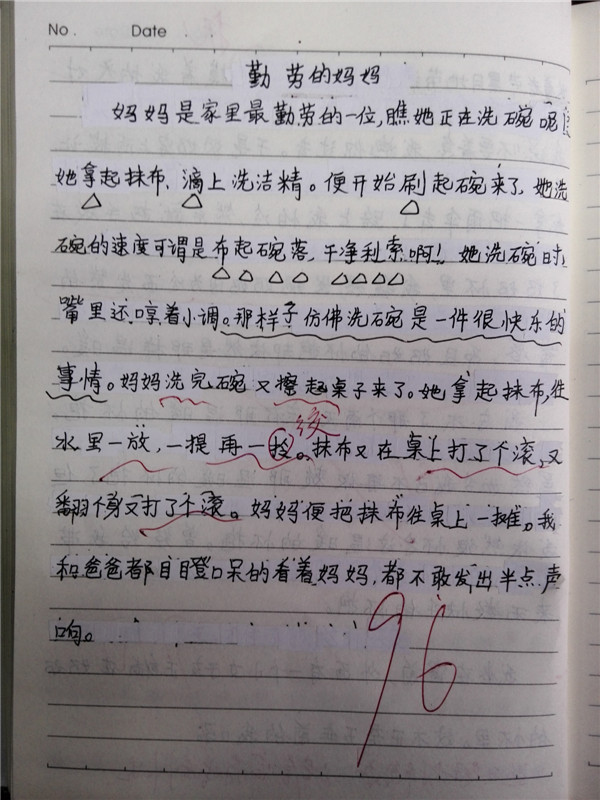 No. Date
勤劳的妈妈
妈妈是家里最勤劳的一位,瞧她正在洗碗呢!
她拿起抹布、滴上洗洁精。便开始刷起碗来了,她洗
碗的速度可谓是布起碗落,干净利索啊!她洗碗时,
嘴里还哼着小调。那样子仿佛洗碗是一件很快乐的
事情。妈妈洗完碗又擦起桌子来了。她拿起抹布,往
绞
水里一放,一提再一拉。抹布又在桌上打了个滚,又
翻个身又打了个滚。妈妈便把抹布往桌上一摊。我
和爸爸都目瞪口呆的看着妈妈,都不敢发出半点声
响。
96